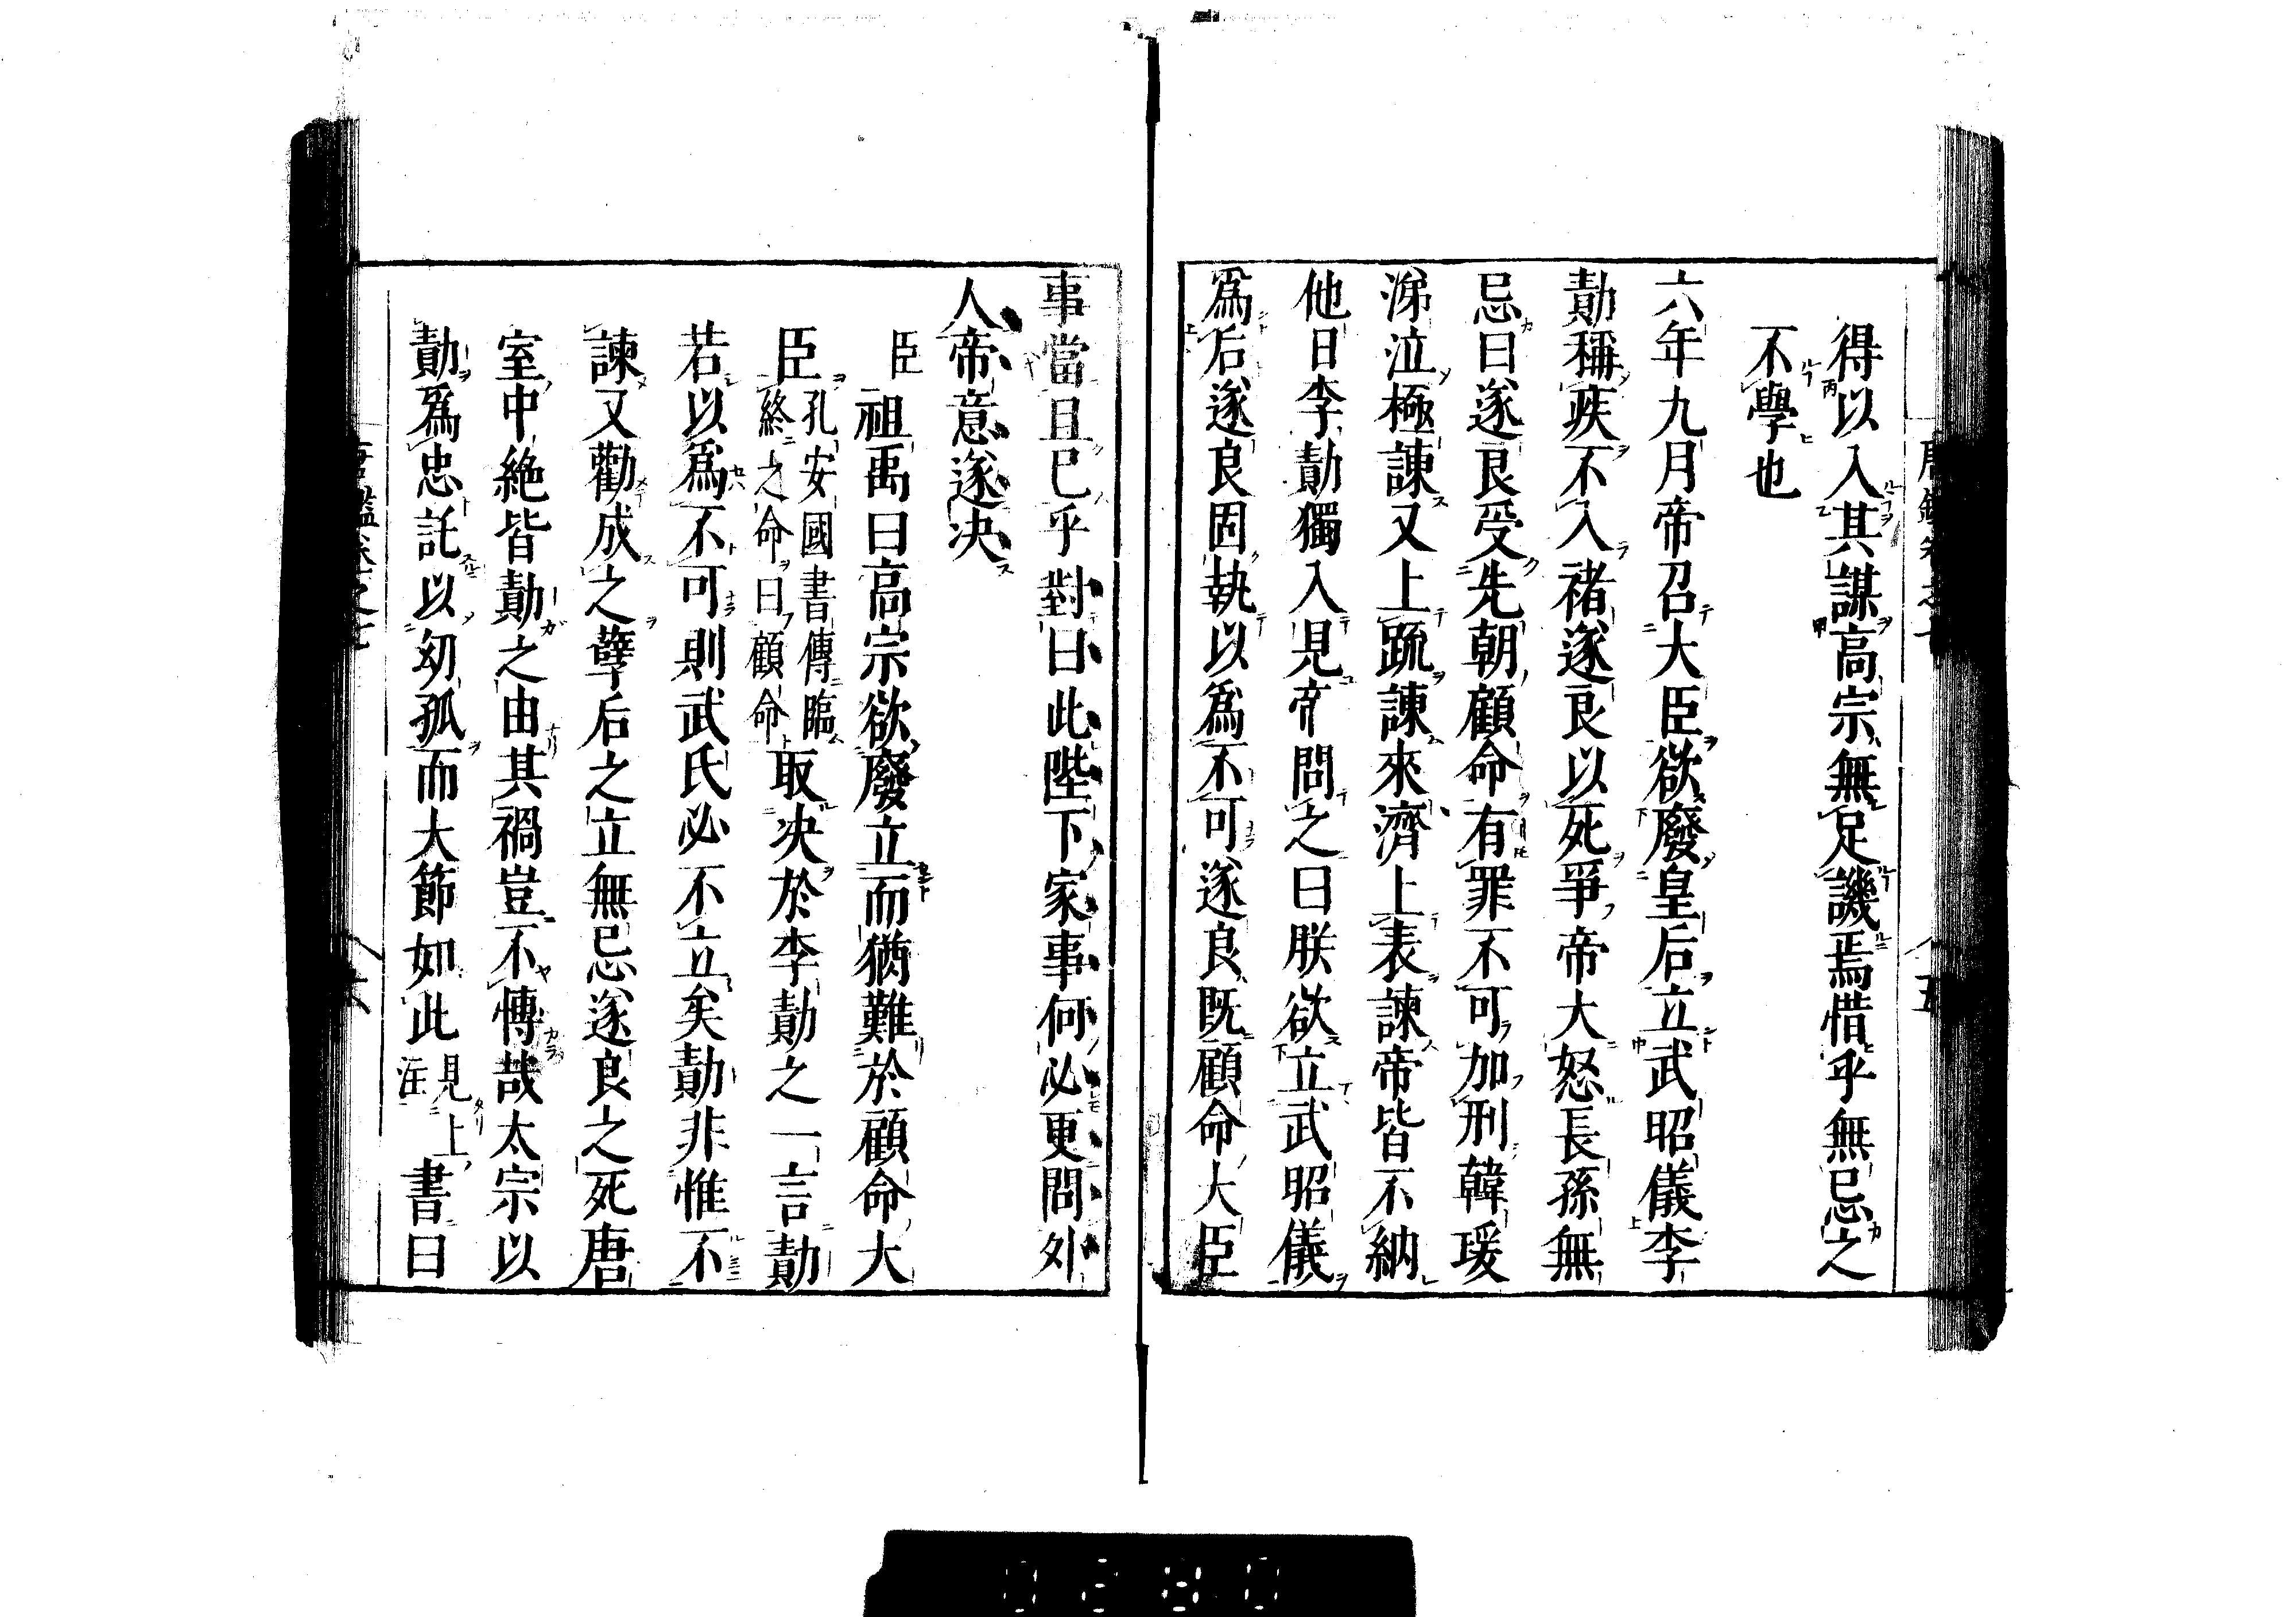 得以入其謀高宗無足譏焉惜乎無忌之
不學也
六年九月帝召大臣欲廢皇后立武昭儀李
勣稱疾不入褚遂良以死爭帝大怒長孫無
忌曰遂良受先朝顧命有罪不可加刑韓瑗
涕泣極諫又上疏諫來濟上表諫帝皆不納
他日李勣獨入見帝問之曰朕欲立武昭儀
爲后遂良固執以爲不可遂良既顧命大臣
事當且已乎對曰此陛下家事何必更問外
人帝意遂决
臣祖禹曰高宗欲廢立而猶難於顧命大
臣孔安國書傳臨終之命曰顧命取决於李勣之一言勣
若以爲不可則武氏必不立矣勣非惟不
諫又勸成之孽后之立無忌遂良之死唐
室中絶皆勣之由其禍豈不慱哉太宗以
勣爲忠託以幼孤而大節如此見上注書曰